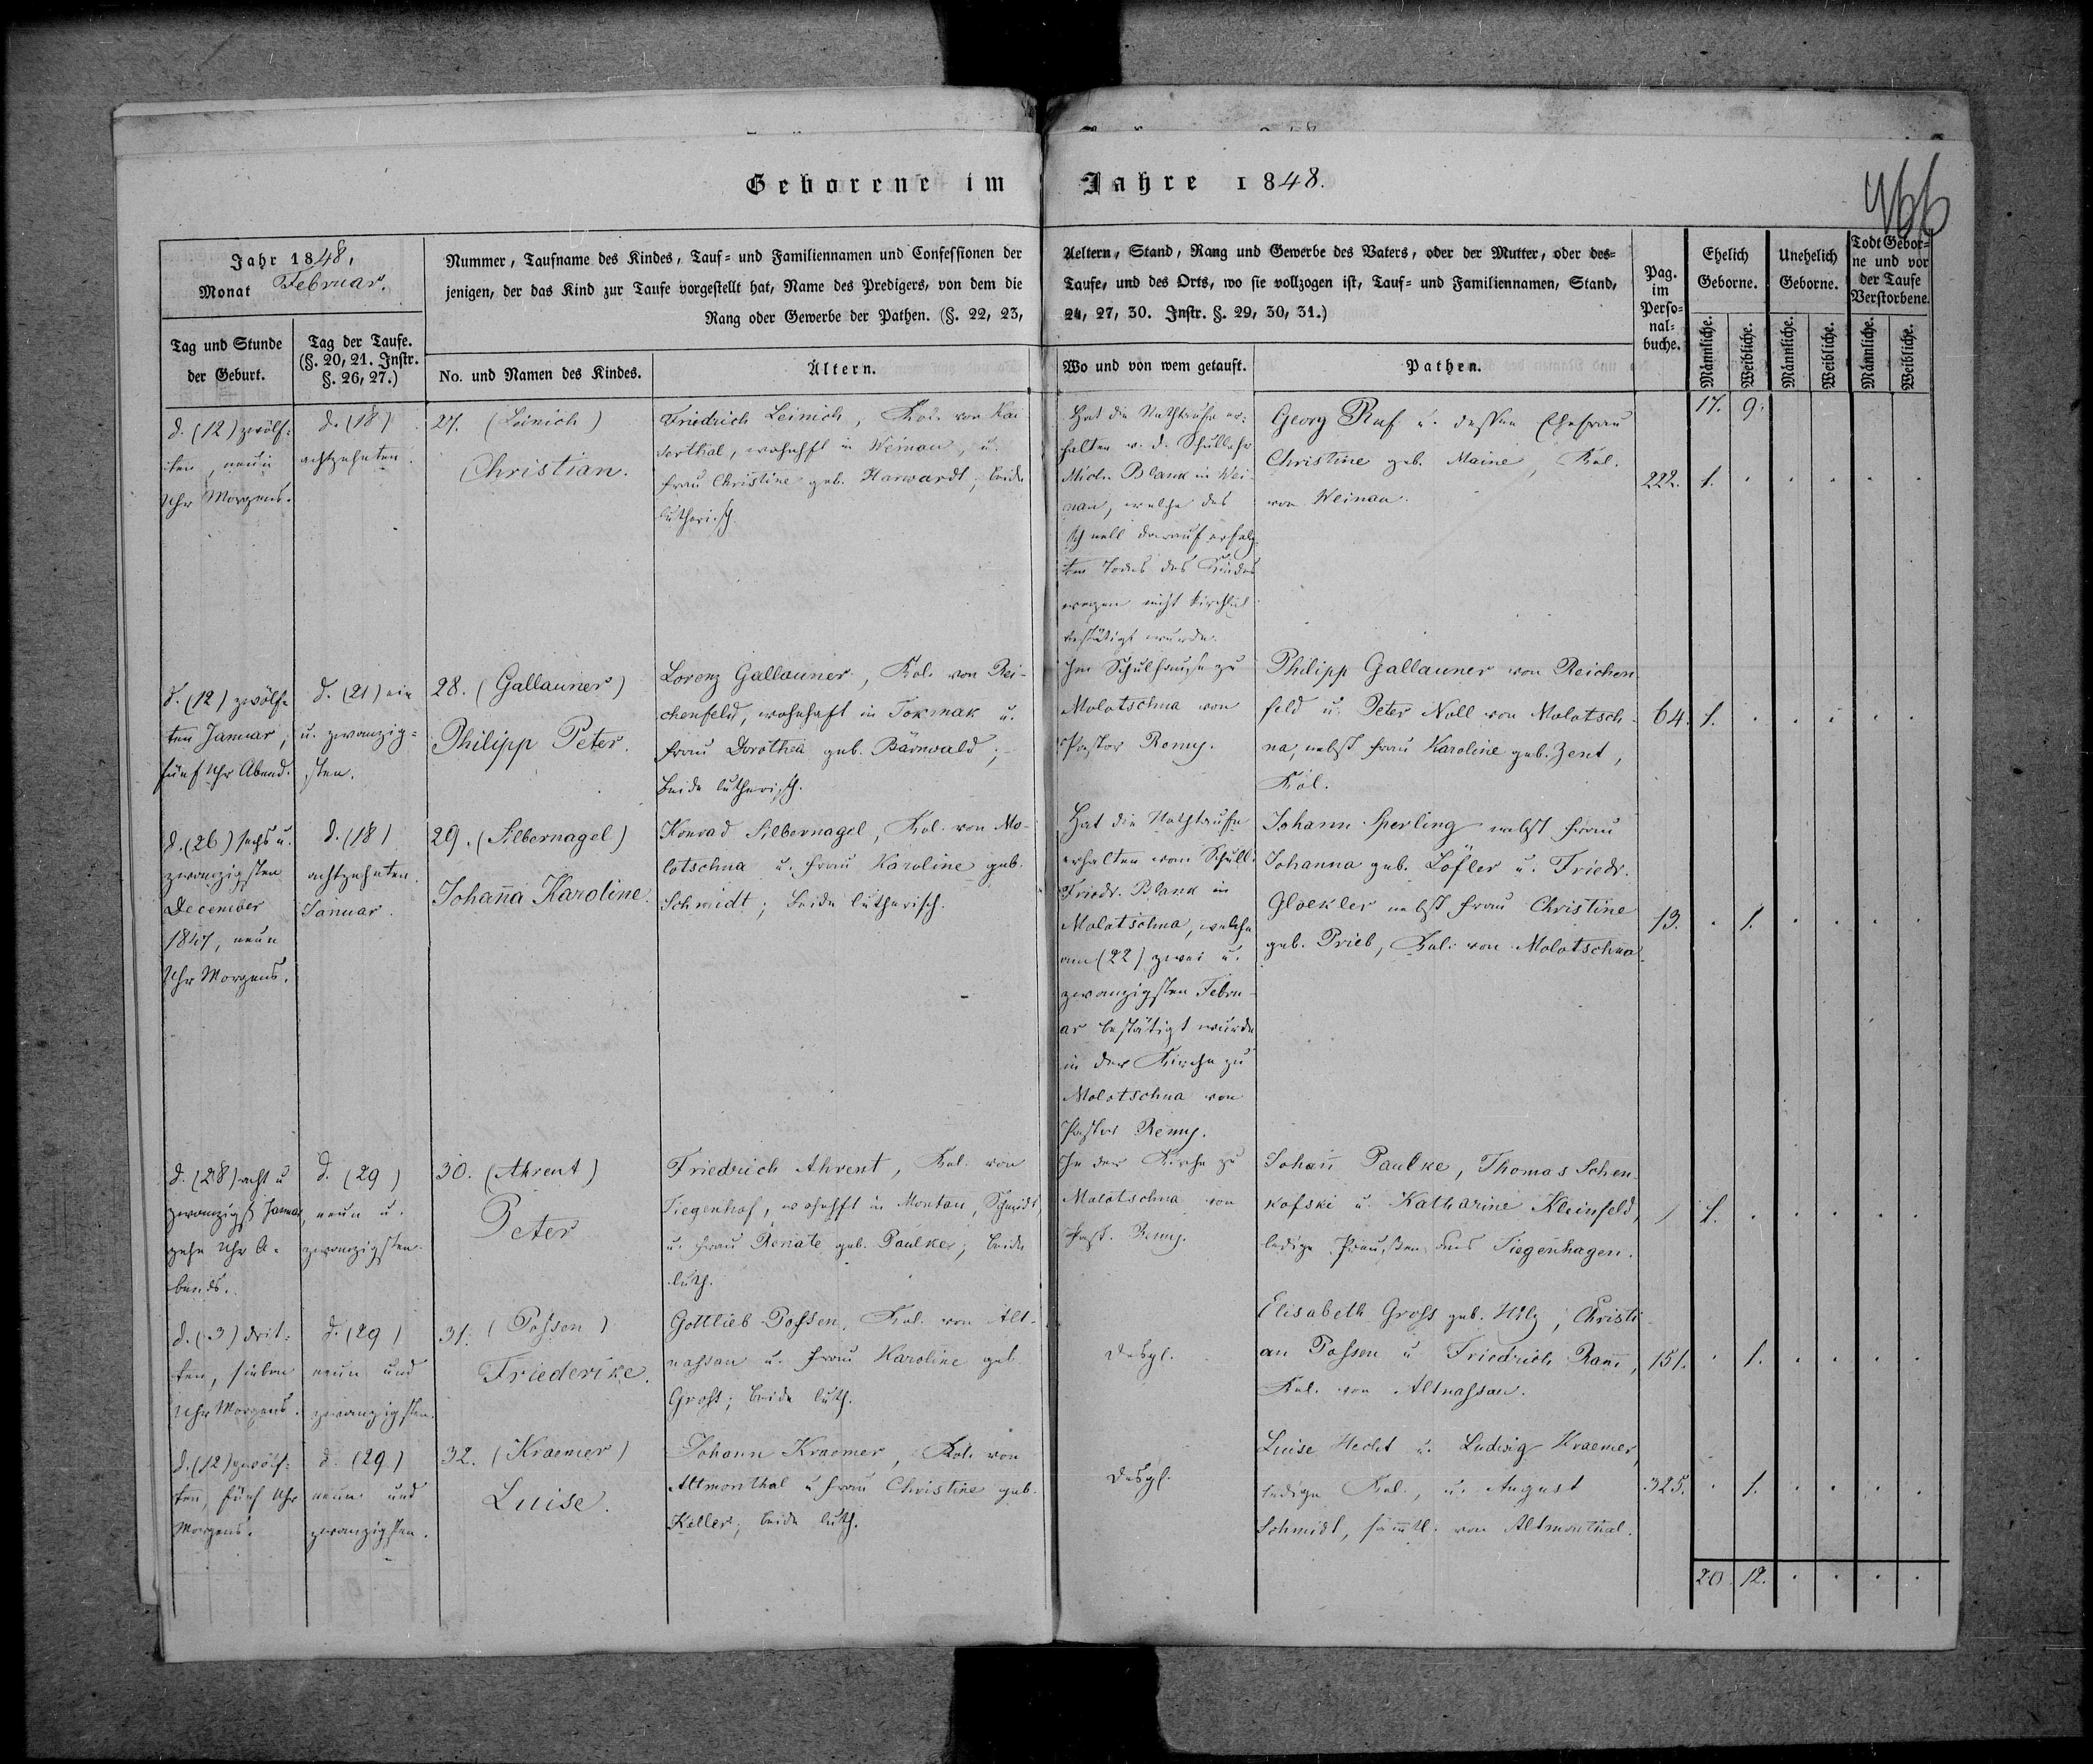 Geborene im Jahre 1848.
466
Jahr 1848,
Monat Februar.
Nummer, Taufname des Kindes, Tauf- und Familiennamen und Confessionen der Aeltern, Stand, Rang und Gewerbe des Vaters, oder der Mutter, oder des-
jenigen, der das Kind zur Taufe vorgestellt hat, Name des Predigers, von dem die Taufe, und des Orts, wo sie vollzogen ist, Tauf- und Familiennamen, Stand,
Rang oder Gewerbe der Pathen. (§. 22, 23, 24, 27, 30. Instr. §. 29, 30, 31.)
Pag.
im
Perso-
nal-
buche.
Ehelich
Geborne.
Unehelich
Geborne.
Todt Gebor-
ne und vor
der Taufe
Verstorbene.
Tag und Stunde
der Geburt.
Tag der Taufe.
(§. 20, 21. Instr.
§. 26, 27.)
No. und Namen des Kindes.
Ältern.
Wo und von wem getauft.
Pathen.
Männliche.
Weibliche.
Männliche.
Weibliche.
Männliche.
Weibliche.
17. 9.
d. (12) zwölf-
ten, neun
Uhr Morgens.
d. (18)
achtzehnten.
27. (Leinich)
Christian.
Friedrich Leinich, Kol. von Kai-
serthal, wohnhft in Weinau, u.
Frau Christine geb. Harwardt; beide
lutherisch.
Hat die Nothtaufe er-
halten v. d. Schullehr
Mich. Blank in Wei-
nau, welche des
schnell darauf erfolg-
ten Todes des Kindes
wegen nicht kirchlich
bestätigt wurde.
Georg Ruf u. dessen Ehefrau
Christine geb. Maine, Kol.
von Weinau.
222. 1. . . . . .
d. (12) zwölf-
ten Januar,
fünf Uhr Abend.
d. (21) ein
u. zwanzig-
sten.
28. (Gallauner)
Philipp Peter.
Lorenz Gallauner, Kol. von Rei-
chenfeld, wohnhaft in Tokmak u.
Frau Dorothea geb. Bärwald;
beide lutherisch.
Im Schulhause zu
Molotschna von
Pastor Remy.
Philipp Gallauner von Reichen-
feld u. Peter Noll von Molotsch-
na, nebst Frau Karoline geb. Zent,
Kol.
64. 1. . . . . .
d. (26) sechs u.
zwanzigsten
December
1847, neun
Uhr Morgens.
d. (18)
achtzehnten
Januar.
29. (Silbernagel)
Johana Karoline.
Konrad Silbernagel, Kol. von Mo-
lotschna u. Frau Karoline geb.
Schmidt; beide lutherisch.
Hat die Nothtaufe
erhalten vom Schull.
Friedr. Blank in
Molotschna, welche
am (22) zwei u.
zwanzigsten Febru-
ar bestätigt wurde
in der Kirche zu
Molotschna von
Pastor Remy.
Johann Sperling nebst Frau
Johanna geb. Löfler u. Friedr.
Gloekler nebst Frau Christine
geb. Prieb, Kol. von Molotschna.
13. . 1. . . . .
d. (28) acht u
zwanzigst Januar
zehn Uhr A-
bends.
d. (29)
neun u.
zwanzigsten.
30. (Ahrent)
Peter
Friedrich Ahrent, Kol. von
Tiegenhof, wohnhft in Montau, Schmidt,
u. Frau Renate geb. Paulke; beide
luth.
In der Kirche zu
Molotschna von
Past. Remy.
Johan Paulke, Thomas Schen-
kofski u. Katharine Kleinfeld,
ledige Preußen aus Tiegenhagen.
/ 1. . . . . .
d. (3) drit-
ten, sieben
Uhr Morgens.
d. (29)
neun und
zwanzigsten.
31. (Possen)
Friederike.
Gottlieb Possen, Kol. von Alt-
nassau u. Frau Karoline geb.
Gross; beide luth.
desgl.
Elisabeth Gross geb. Hilz, Christi-
an Possen u Friedrich Rann,
Kol. von Altnassau.
151. . 1. . . . .
d. (12) zwölf-
ten, fünf Uhr
Morgens.
d. (29)
neun und
zwanzigsten.
32. (Kraemer)
Luise.
Johann Kraemer, Kol. von
Altmonthal u Frau Christine geb.
Keller; beide luth.
desgl.
Luise Hecht u. Ludwig Kraemer,
ledige Kol., u. August
Schmidt, sämtl. von Altmonthal.
325. . 1. . . . .
20. 12. . . . .